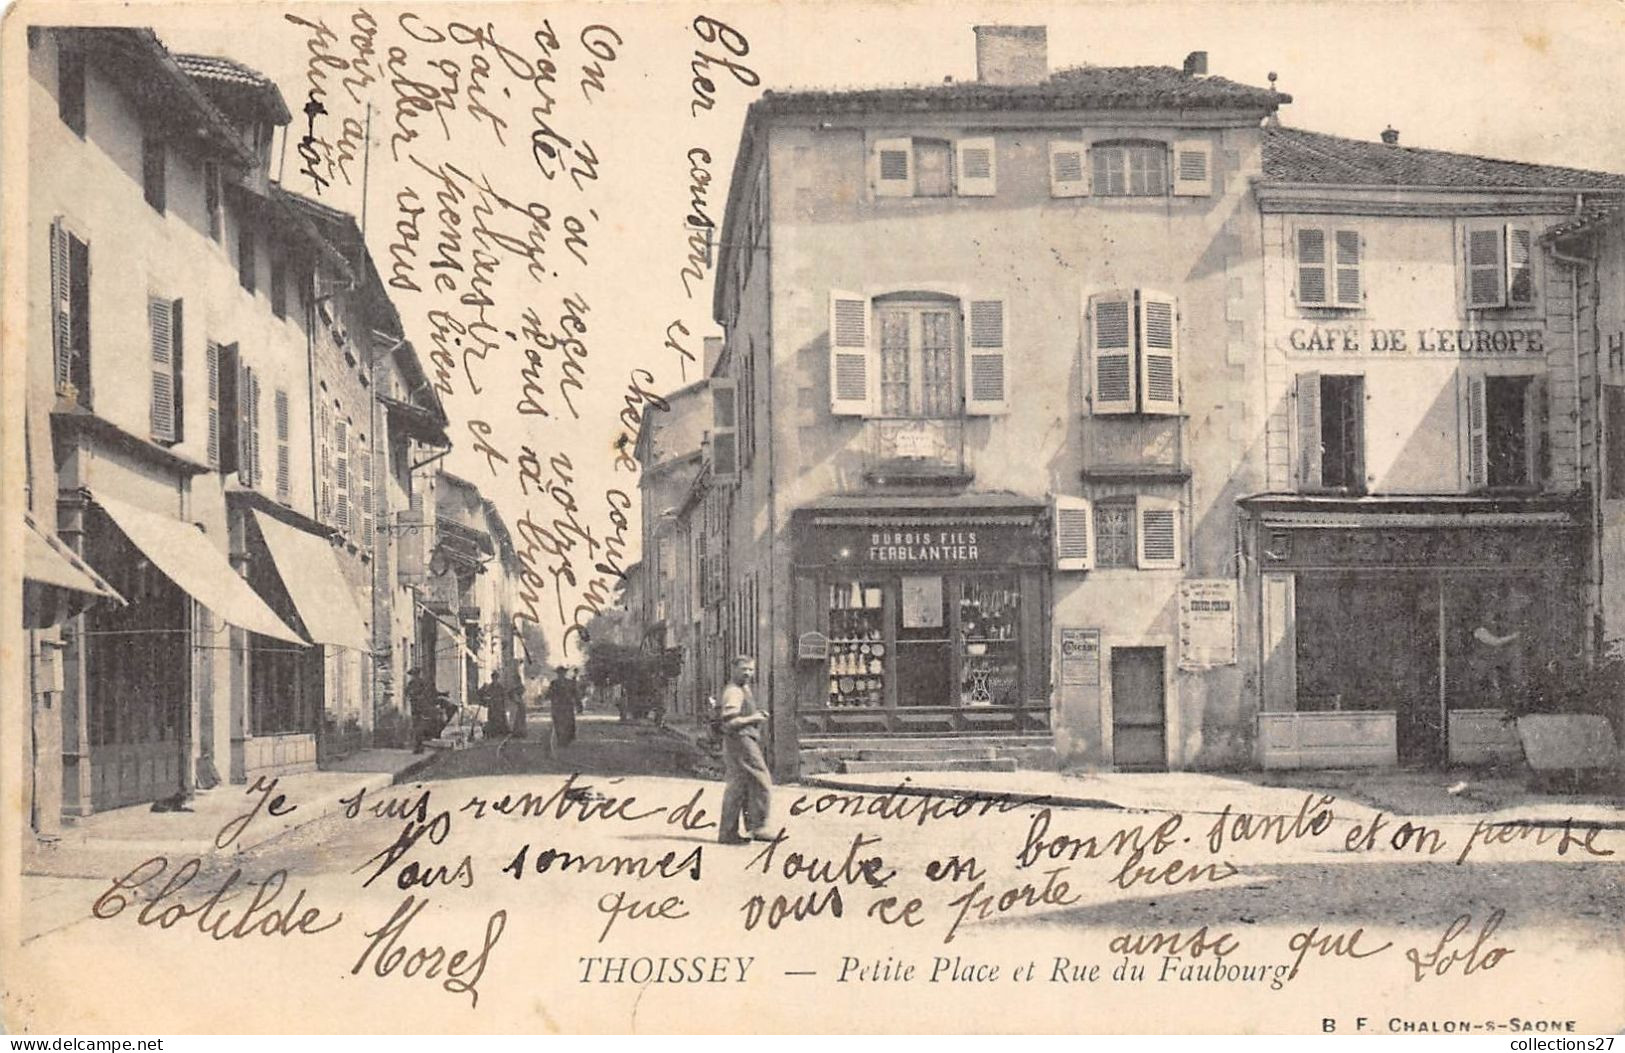 Cher cousin et
chere cousine
On n'a reçu votre
carte qui nous à bien
fait plaisir et
l'on pense bien
aller vous
voir au
plus tot
CAFÉ DE L'EUROPE
H
DUBOIS FILS
FERBLANTIER
Je suis rentrée de condision
Nous sommes toute en bonne santé et on pense
que vous ce porte bien
ainsi que Lolo
Clotilde
Morel
THOISSEY — Petite Place et Rue du Faubourg
B F CHALON-S-SAONE
collections27